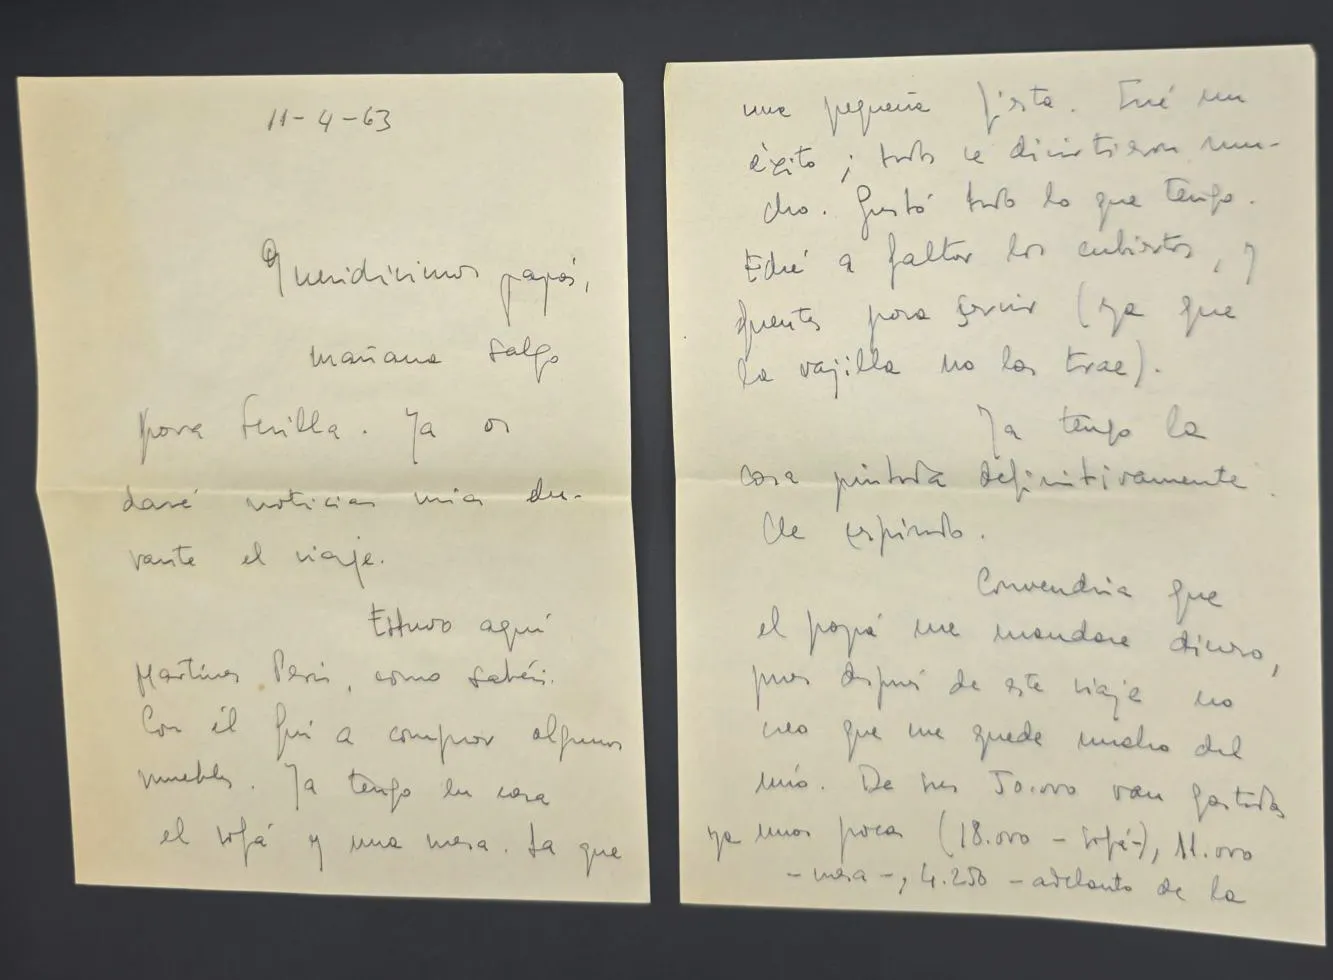 11-4-63
Queridísimos papás,
mañana salgo
para Sevilla. Ya os
daré noticias mías du-
rante el viaje.
Estuvo aquí
Martínez Peris, como sabéis.
Con él fui a comprar algunos
muebles. Ya tengo en casa
el sofá y una mesa. La que
una pequeña fiesta. Fué un
éxito; todos se divirtieron mu-
cho. Gustó todo lo que tengo.
Eché a faltar los cubiertos, y
fuentes para servir (ya que
la vajilla no las trae).
Ya tengo la
casa pintada definitivamente.
De espinto.
Convendría que
el papá me mandase dinero,
pues después de este viaje no
creo que me quede mucho del
mío. De sus 50.000 van gastadas
ya unas pocas (18.000 - sofá-), 11.000
- mesa -, 4.250 - adelanto de la